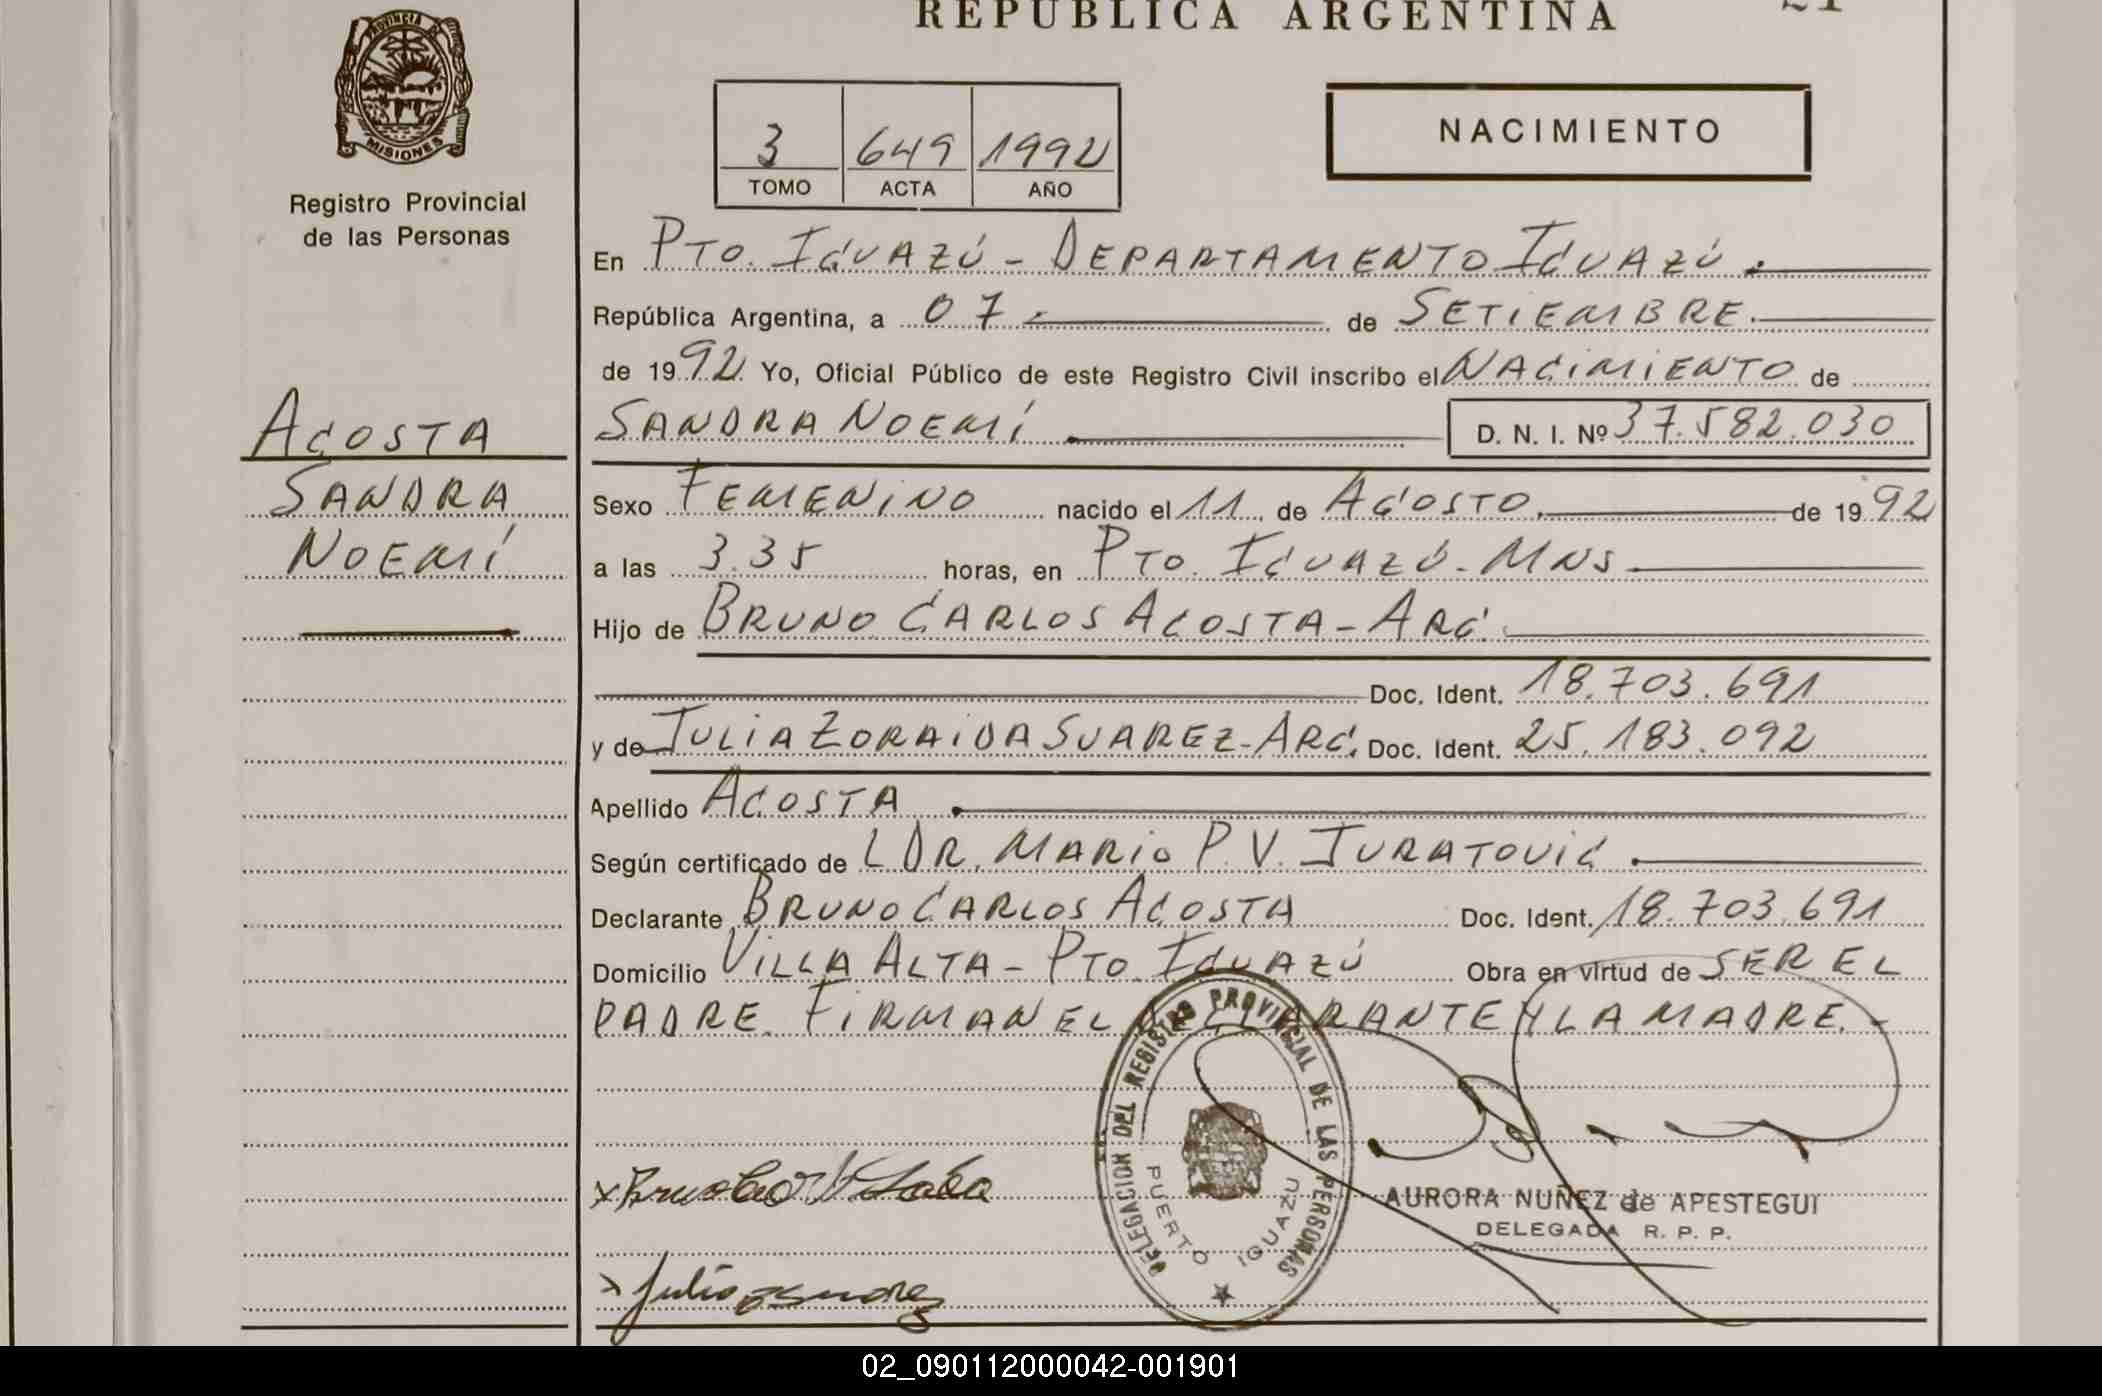 REPUBLICA ARGENTINA
PROVINCIA
MISIONES
Registro Provincial
de las Personas
3 649 1992
TOMO ACTA AÑO
NACIMIENTO
En PTO. IGUAZÚ - DEPARTAMENTO IGUAZÚ.
República Argentina, a 07 de SETIEMBRE.
de 1992 Yo, Oficial Público de este Registro Civil inscribo el NACIMIENTO de
SANDRA NOEMÍ D. N. I. Nº 37.582.030
ACOSTA
SANDRA
NOEMÍ
Sexo FEMENINO nacido el 11 de AGOSTO. de 1992
a las 3.35 horas, en PTO. IGUAZÚ - MNS
Hijo de BRUNO CARLOS ACOSTA - ARG.
Doc. Ident. 18.703.691
y de JULIA ZORAIDA SUAREZ - ARG. Doc. Ident. 25.183.092
Apellido ACOSTA
Según certificado de L DR. MARIO P. V. JURATOVIC
Declarante BRUNO CARLOS ACOSTA Doc. Ident. 18.703.691
Domicilio VILLA ALTA - PTO. IGUAZÚ Obra en virtud de SER EL
PADRE. FIRMAN EL DECLARANTE Y LA MADRE. -
DELEGACION DEL REGISTRO PROVINCIAL DE LAS PERSONAS
PUERTO IGUAZU
AURORA NUÑEZ de APESTEGUI
DELEGADA R. P. P.
02_090112000042-001901